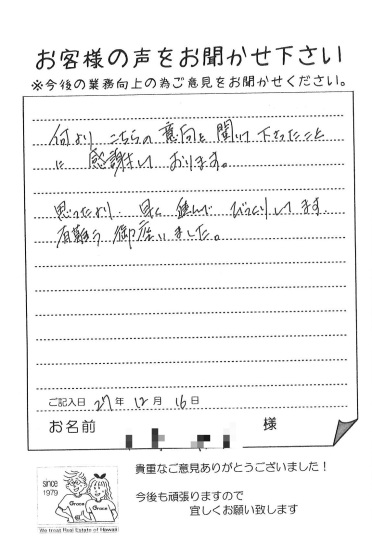 お客様の声をお聞かせ下さい
※今後の業務向上の為ご意見をお聞かせください。
何より こちらの意向を聞いて下さったこと
に 感謝して おります。
思ったより、早く 進んで びっくりしてます。
有難う 御座いました。
ご記入日 27年 12月 16日
お名前 様
貴重なご意見ありがとうございました！
今後も頑張りますので
宜しくお願い致します
since
1979
Grace
Grace
We treat Real Estate of Hawaii